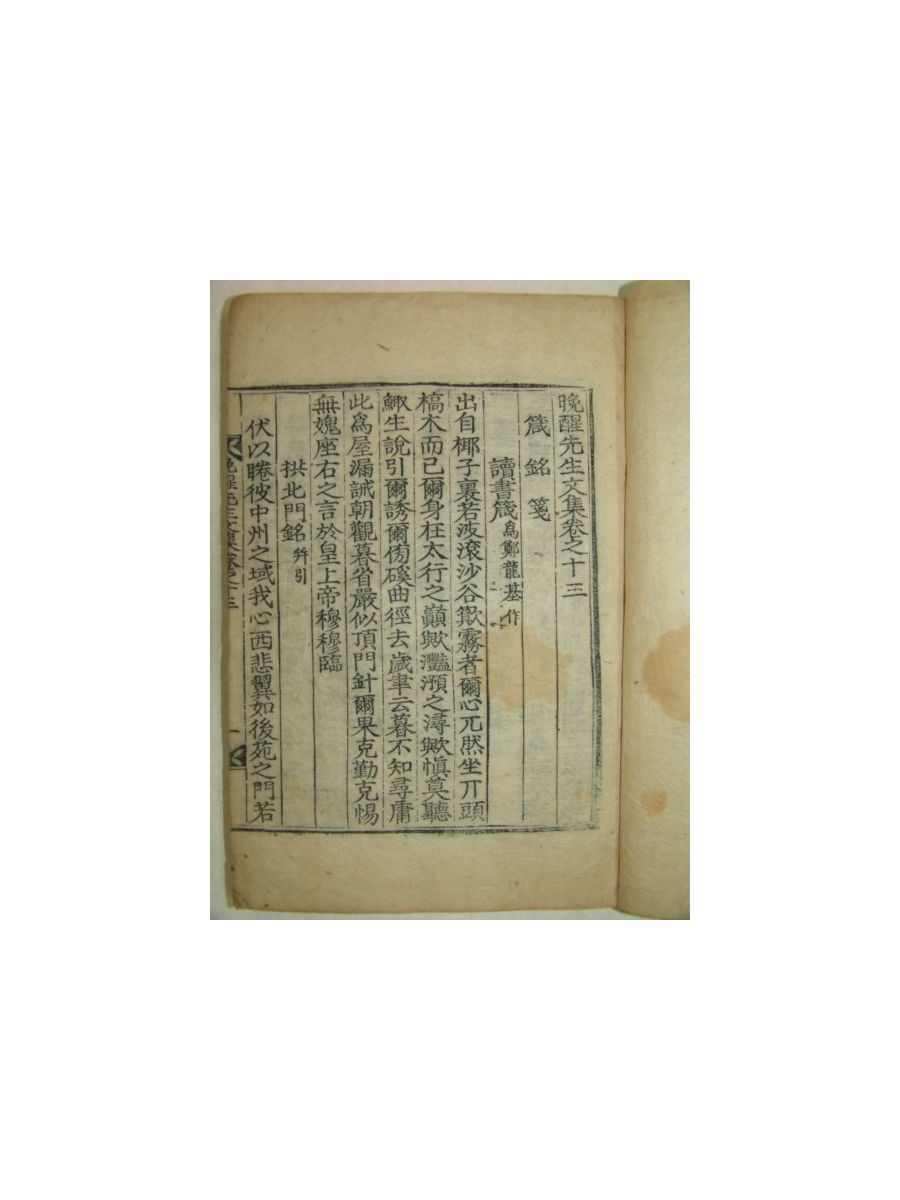 晚醒先生文集卷之十三
箴 銘 箋
讀書箴 爲鄭龍基作
出自椰子裏若波滾沙谷歕霧者爾心兀然坐丌頭
槁木而已爾身在太行之巓歟灩澦之潯歟愼莫聽
鯫生說引爾誘爾傍磎曲徑去歲聿云暮不知尋庸
此爲屋漏誡朝觀暮省嚴似頂門針爾果克勤克惕
無媿座右之言於皇上帝穆穆臨
拱北門銘 幷引
伏以睠彼中州之域我心西悲翼如後苑之門若
晚醒先生文集卷之十三 一